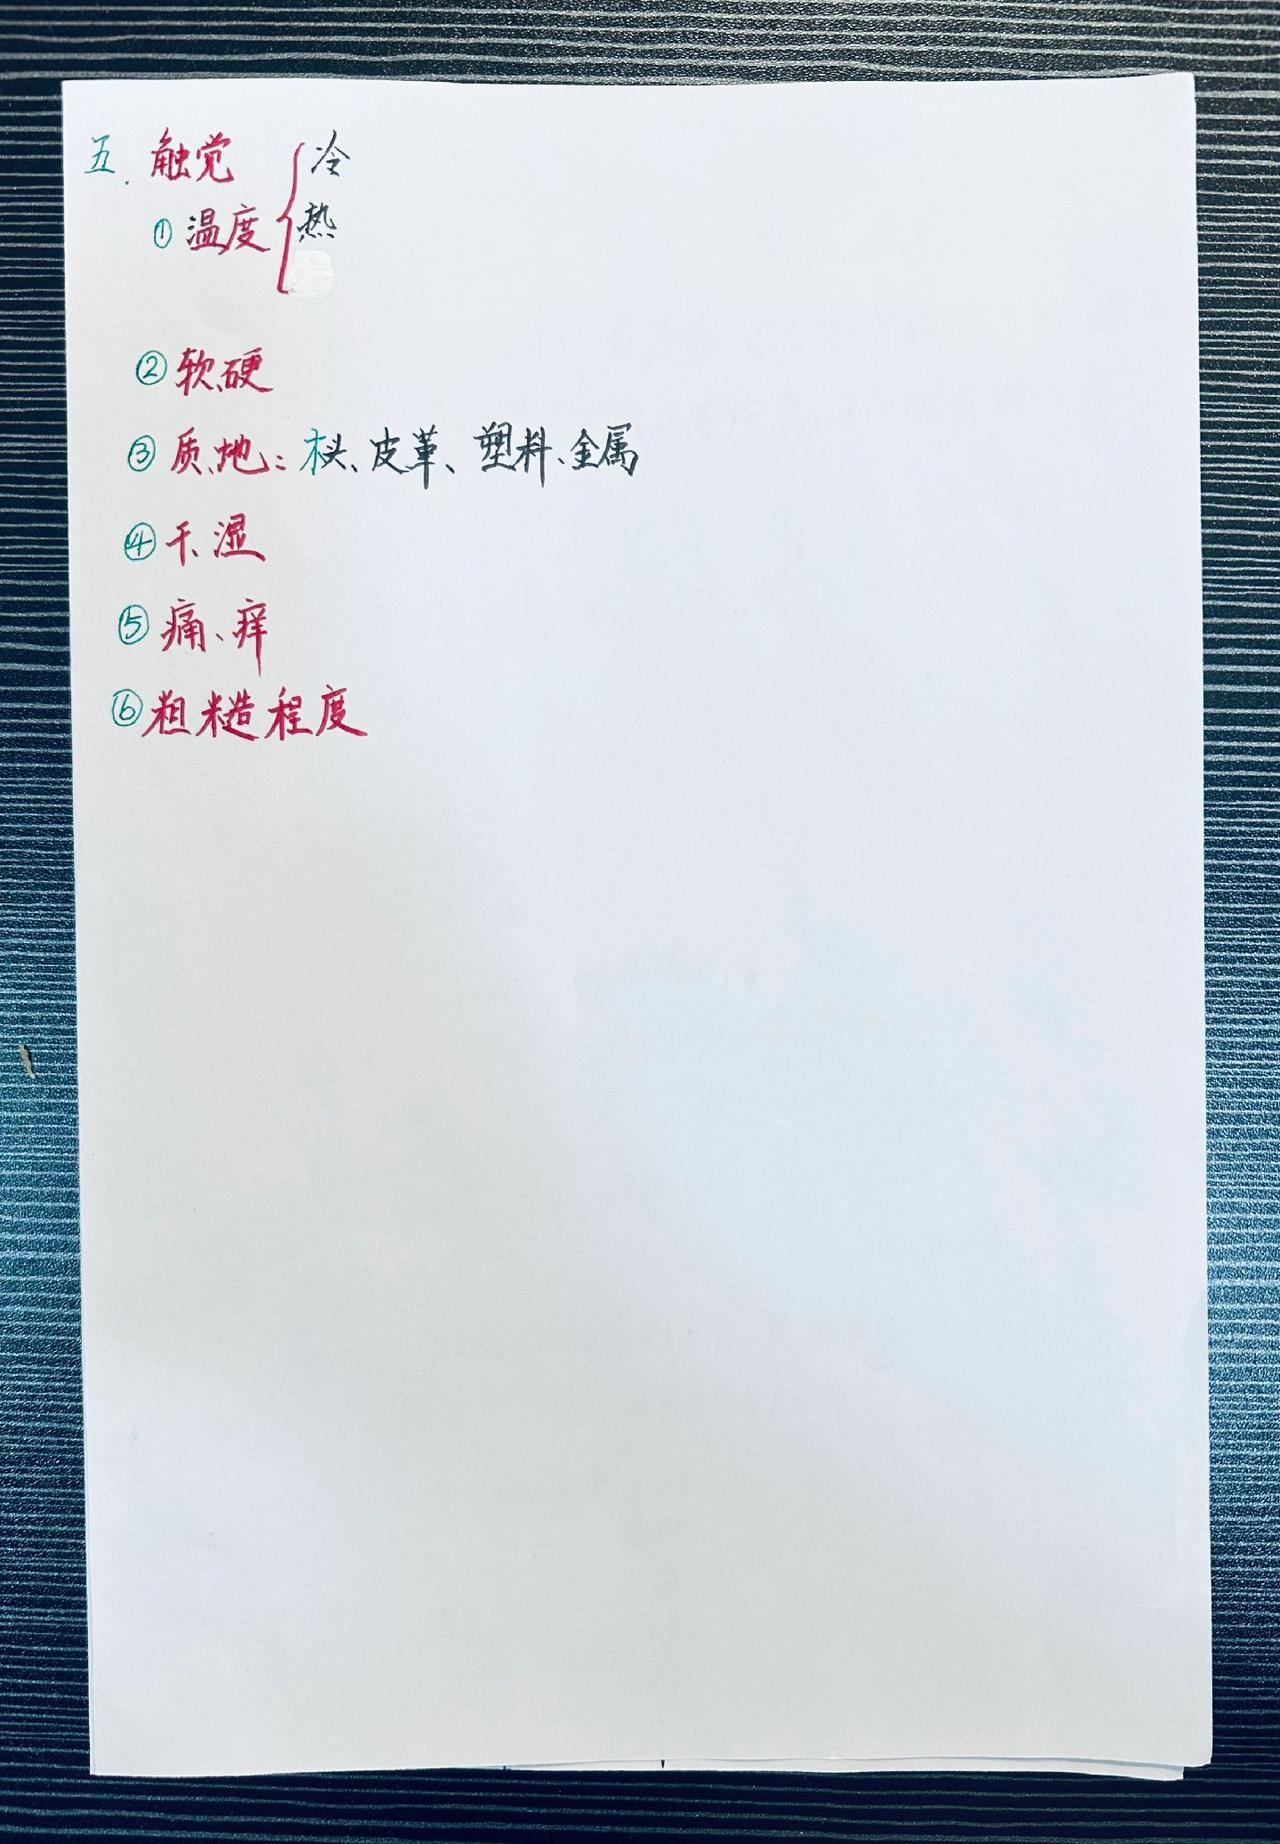 五、触觉
①温度{冷
热
②软、硬
③质、地：木头、皮革、塑料、金属
④干、湿
⑤痛、痒
⑥粗糙程度